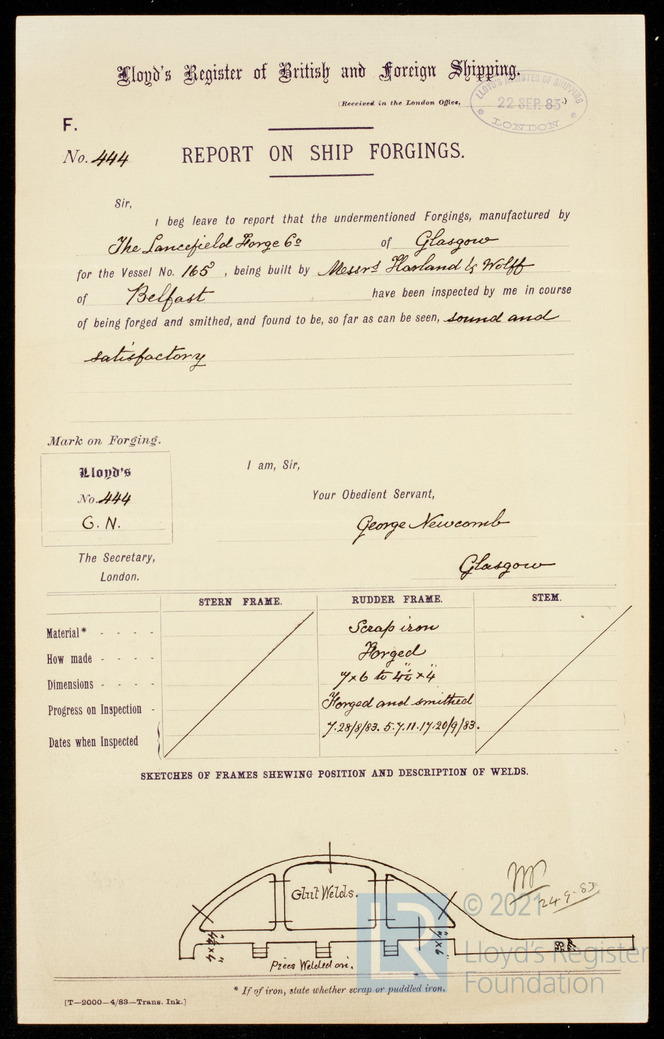 Lloyd's Register of British and Foreign Shipping.
(Received in the London Office, )
LLOYD'S REGISTER OF SHIPPING
22 SEP. 83
LONDON
F.
No. 444 REPORT ON SHIP FORGINGS.
Sir,
I beg leave to report that the undermentioned Forgings, manufactured by
The Lancefield Forge Co of Glasgow
for the Vessel No. 165, being built by Messrs Harland & Wolff
of Belfast have been inspected by me in course
of being forged and smithed, and found to be, so far as can be seen, sound and
satisfactory
Mark on Forging.
Lloyd's
No. 444
G. N.
I am, Sir,
Your Obedient Servant,
George Newcomb
Glasgow
The Secretary,
London.
STERN FRAME. RUDDER FRAME. STEM.
Material* - - - - Scrap iron
How made - - - - Forged
Dimensions - - - - 7 x 6 to 4½" x 4"
Progress on Inspection - Forged and smithed
Dates when Inspected 7.28/8/83. 5.7.11.17.20/9/83.
SKETCHES OF FRAMES SHEWING POSITION AND DESCRIPTION OF WELDS.
Glut Welds.
Pieces Welded on.
24-9-83
© 2021
LR
Lloyd's Register
Foundation
* If of iron, state whether scrap or puddled iron.
[T—2000—4/83—Trans. Ink.]